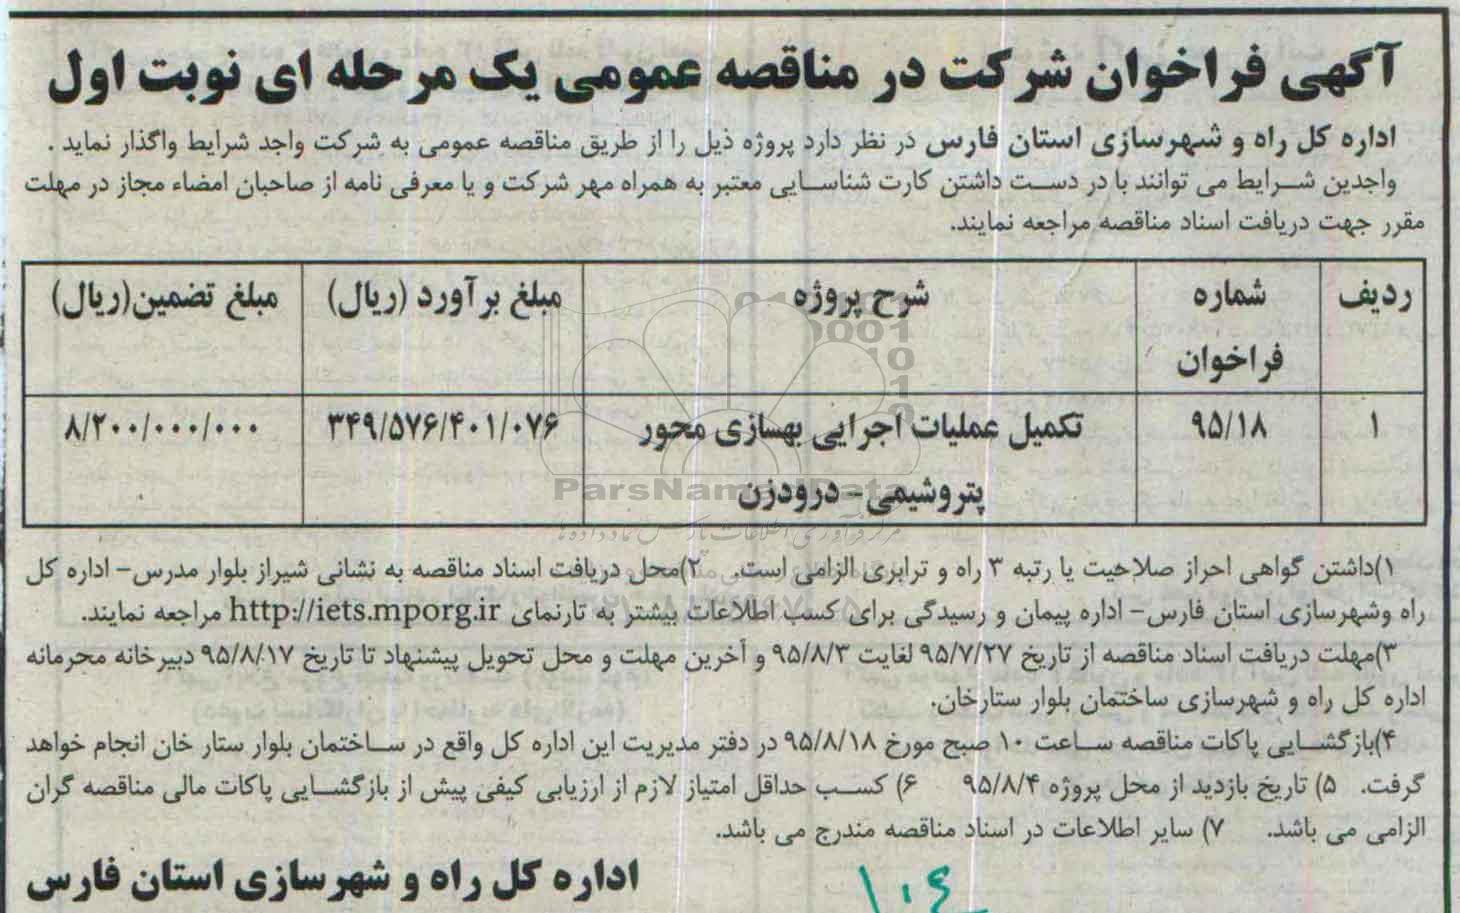 آگهی فراخوان شرکت در مناقصه عمومی یک مرحله ای نوبت اول
اداره کل راه و شهرسازی استان فارس در نظر دارد پروژه ذیل را از طریق مناقصه عمومی به شرکت واجد شرایط واگذار نماید .
واجدین شرایط می توانند با در دست داشتن کارت شناسایی معتبر به همراه مهر شرکت و یا معرفی نامه از صاحبان امضاء مجاز در مهلت
مقرر جهت دریافت اسناد مناقصه مراجعه نمایند.
ردیف شماره فراخوان شرح پروژه مبلغ برآورد (ریال) مبلغ تضمین(ریال)
۱ ۹۵/۱۸ تکمیل عملیات اجرایی بهسازی محور ۳۴۹/۵۷۶/۴۰۱/۰۷۶ ۸/۲۰۰/۰۰۰/۰۰۰
پتروشیمی- درودزن
ParsNamadData
۱)داشتن گواهی احراز صلاحیت یا رتبه ۳ راه و ترابری الزامی است. ۲)محل دریافت اسناد مناقصه به نشانی شیراز بلوار مدرس- اداره کل
راه وشهرسازی استان فارس- اداره پیمان و رسیدگی برای کسب اطلاعات بیشتر به تارنمای http://iets.mporg.ir مراجعه نمایند.
۳)مهلت دریافت اسناد مناقصه از تاریخ ۹۵/۷/۲۷ لغایت ۹۵/۸/۳ و آخرین مهلت و محل تحویل پیشنهاد تا تاریخ ۹۵/۸/۱۷ دبیرخانه محرمانه
اداره کل راه و شهرسازی ساختمان بلوار ستارخان.
۴)بازگشایی پاکات مناقصه ساعت ۱۰ صبح مورخ ۹۵/۸/۱۸ در دفتر مدیریت این اداره کل واقع در ساختمان بلوار ستار خان انجام خواهد
گرفت. ۵) تاریخ بازدید از محل پروژه ۹۵/۸/۴ ۶) کسب حداقل امتیاز لازم از ارزیابی کیفی پیش از بازگشایی پاکات مالی مناقصه گران
الزامی می باشد. ۷) سایر اطلاعات در اسناد مناقصه مندرج می باشد.
اداره کل راه و شهرسازی استان فارس
۱۰۴